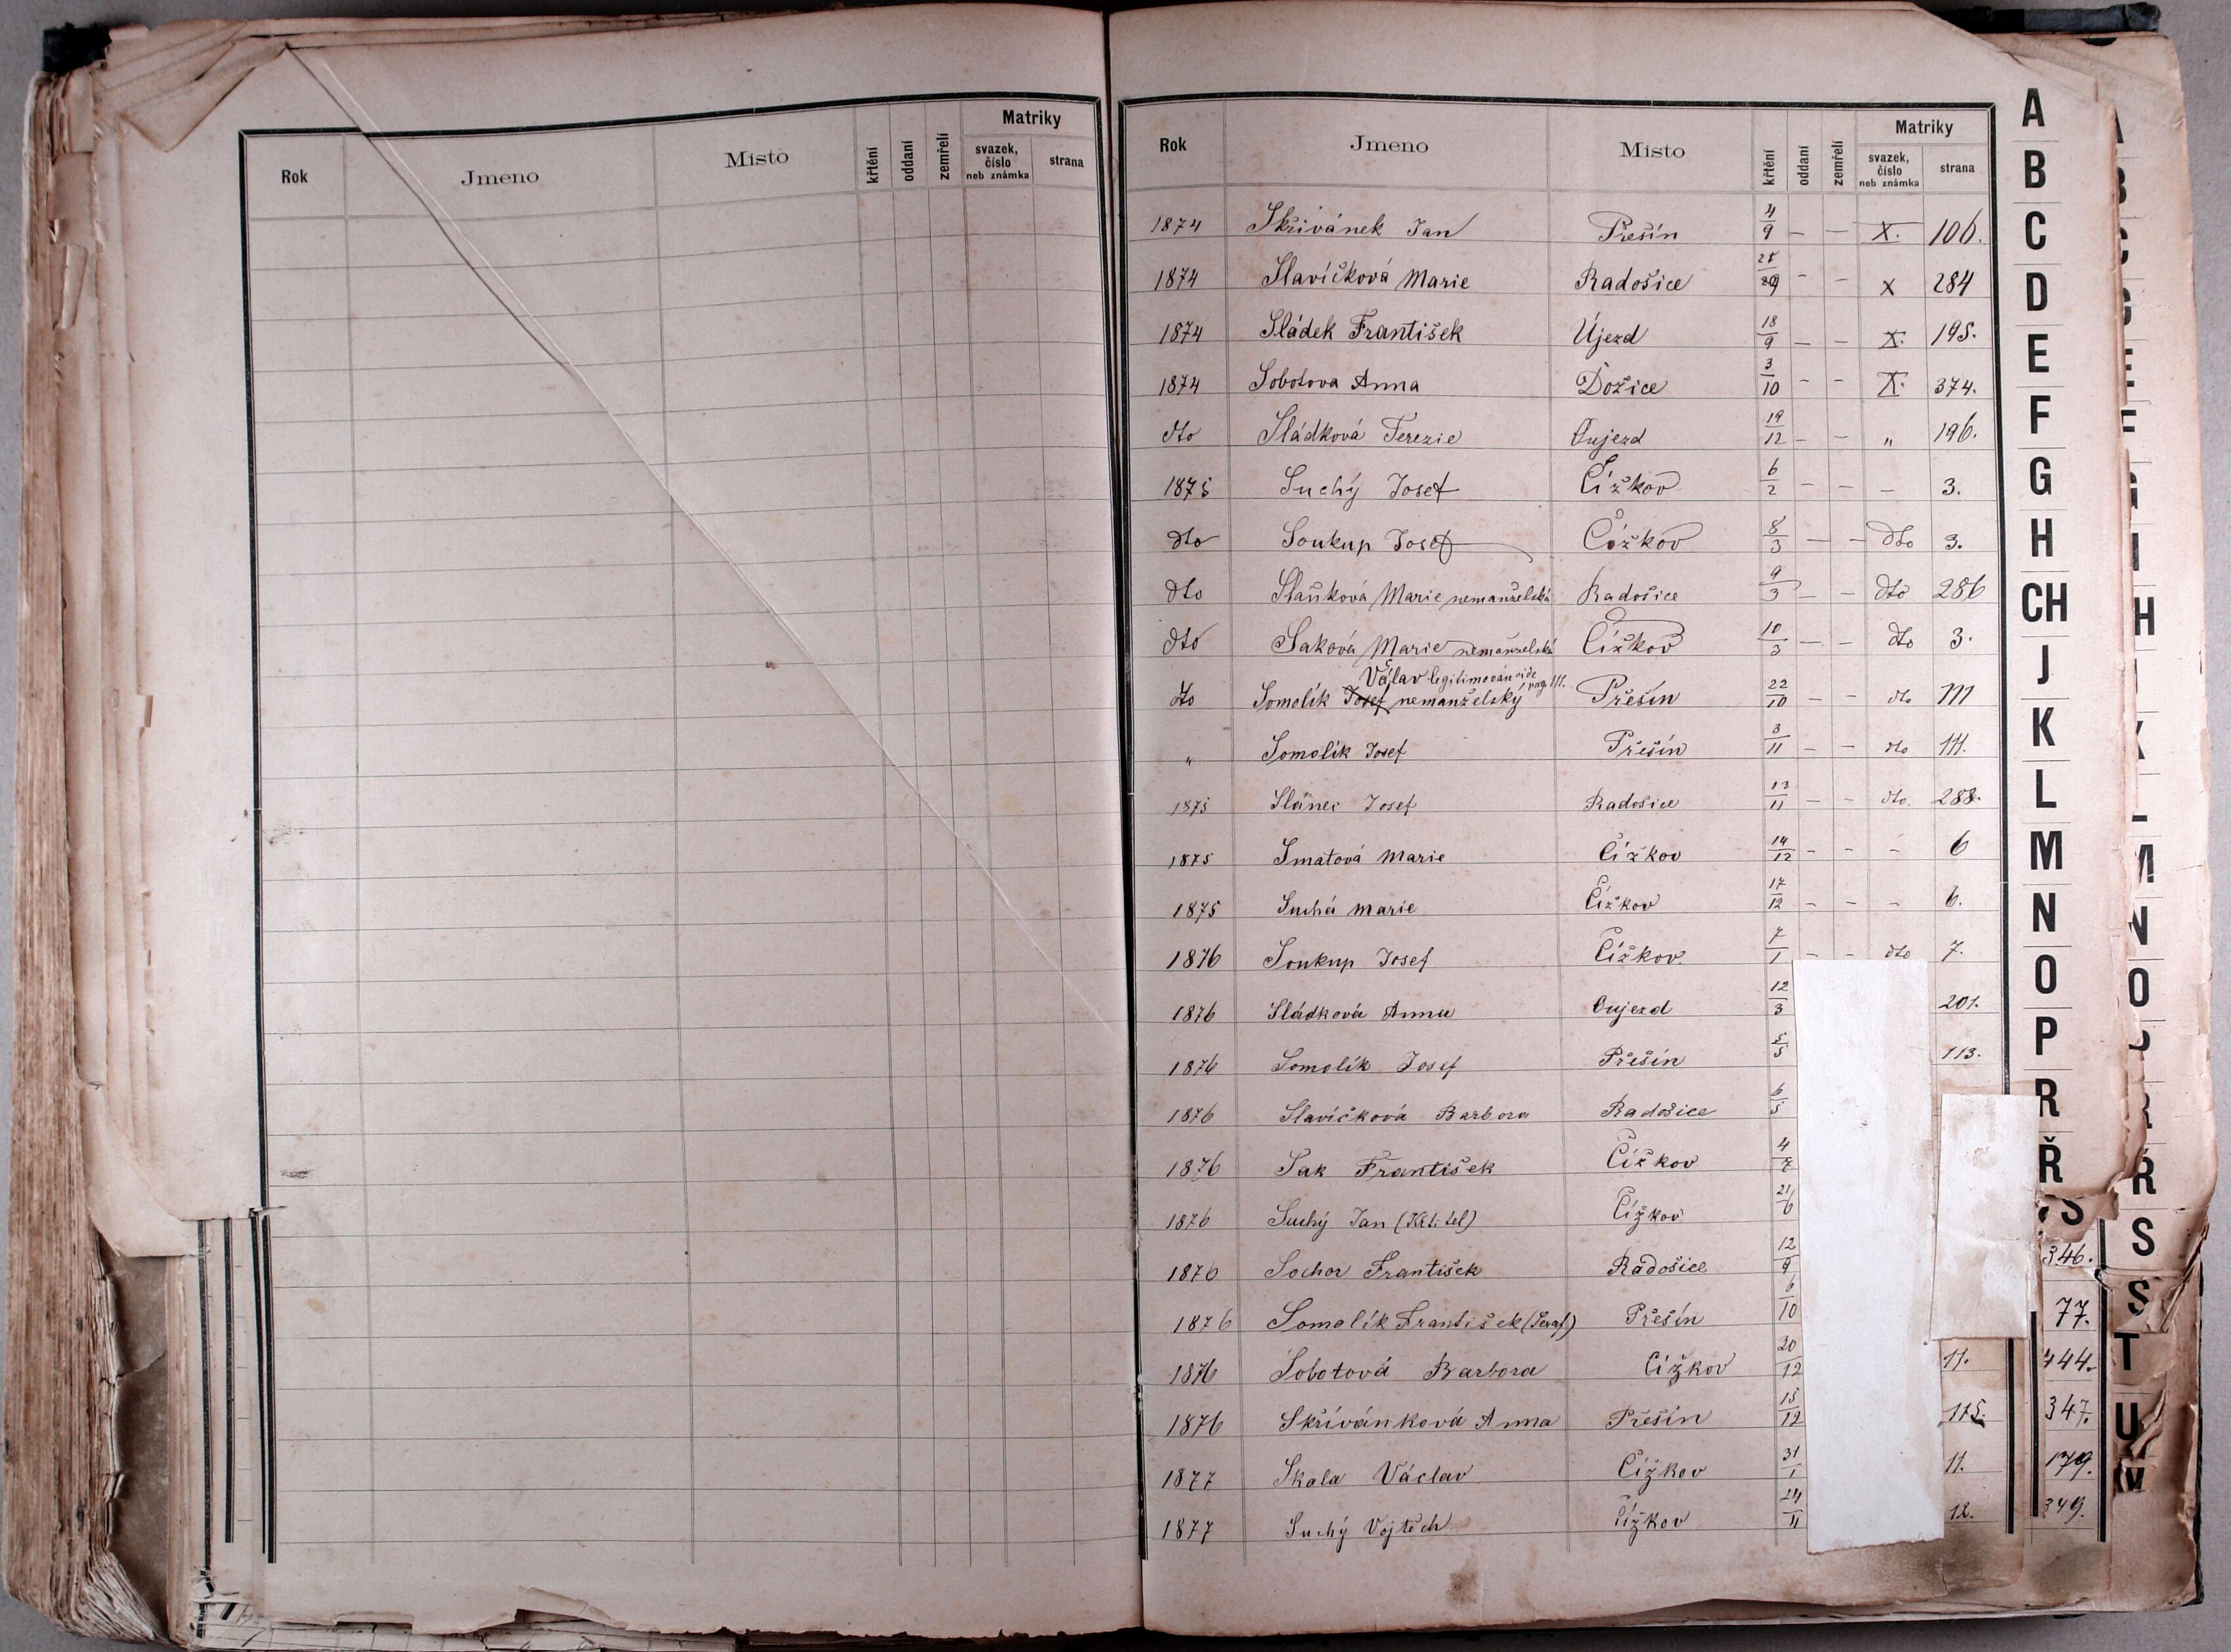 Rok Jmeno Misto křtění oddaní zemřelí Matriky svazek, číslo neb známka strana
Rok Jmeno Misto křtění oddaní zemřelí Matriky svazek, číslo neb známka strana
1874 Skřivánek Jan Přešín 4/9 — — X. 106.
1874 Slavíčková Marie Radošice - - X 284
1874 Sládek František Újezd 18/9 — — X. 195.
1874 Sobotova Anna Dožice 3/10 - - X. 374.
dto Sládková Terezie Oujezd 19/12 — — „ 196.
1875 Suchý Josef Čížkov 6/2 - - - 3.
dto Soukup Josef Čížkov 8/3 — — dto 3.
dto Slaňková Marie nemanželská Radošice 9/3 — — dto 286
dto Saková Marie nemanželská Čížkov 10/3 — — dto 3.
Václav legitimován vide pag 111.
dto Somolík Josef nemanželský Přešín 22/10 — - dto 111
„ Somolík Josef Přešín 3/11 — — dto 111.
1875 Slanec Josef Radošice 13/11 — - dto. 288.
1875 Smatová Marie Čížkov 14/12 - - - 6
1875 Suchá Marie Čížkov 17/12 - - - 6.
1876 Soukup Josef Čížkov 7/1 - - dto 7.
1876 Sládková Anna Oujezd 12/3 201.
1876 Somolík Josef Přešín 5/5 113.
1876 Slavíčková Barbora Radošice 6/5
1876 Sak František Čížkov 4/7
1876 Suchý Jan (Křtitel) Čížkov 21/6
1876 Sochor František Radošice 12/9
1876 Somolík František (Seraf) Přešín 6/10
1876 Sobotová Barbora Čížkov 20/12 11.
1876 Skřívánková Anna Přešín 15/12 115.
1877 Skala Václav Čížkov 31/1 11.
1877 Suchý Vojtěch Čížkov 24/11 12.
346.
77.
444.
347.
179.
349.
A
B
C
D
E
F
G
H
CH
J
K
L
M
N
O
P
R
Ř
S
H
M
N
O
Ř
S
Š
T
U